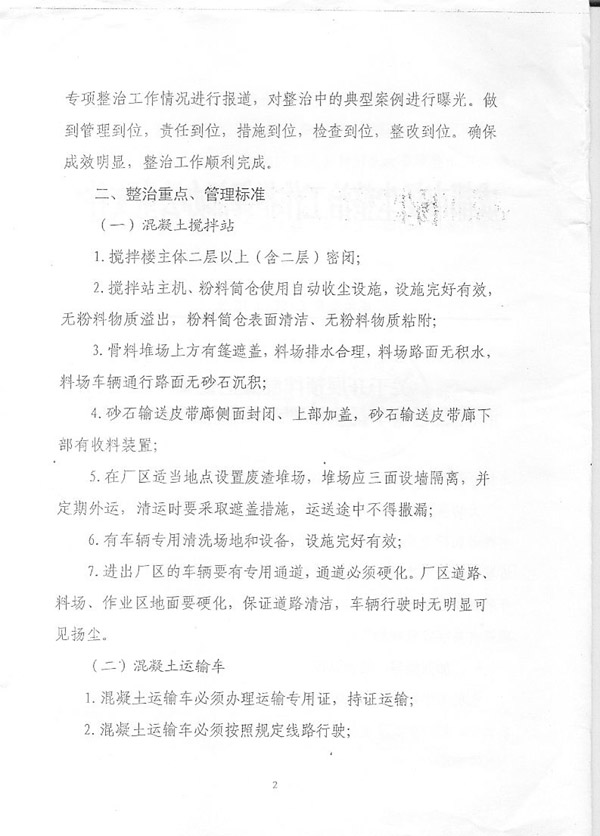 专项整治工作情况进行报道，对整治中的典型案例进行曝光。做
到管理到位，责任到位，措施到位，检查到位，整改到位。确保
成效明显，整治工作顺利完成。
二、整治重点、管理标准
（一）混凝土搅拌站
1.搅拌楼主体二层以上（含二层）密闭；
2.搅拌站主机、粉料筒仓使用自动收尘设施，设施完好有效，
无粉料物质溢出，粉料筒仓表面清洁、无粉料物质粘附；
3.骨料堆场上方有篷遮盖，料场排水合理，料场路面无积水，
料场车辆通行路面无砂石沉积；
4.砂石输送皮带廊侧面封闭、上部加盖，砂石输送皮带廊下
部有收料装置；
5.在厂区适当地点设置废渣堆场，堆场应三面设墙隔离，并
定期外运，清运时要采取遮盖措施，运送途中不得撒漏；
6.有车辆专用清洗场地和设备，设施完好有效；
7.进出厂区的车辆要有专用通道，通道必须硬化。厂区道路、
料场、作业区地面要硬化，保证道路清洁，车辆行驶时无明显可
见扬尘。
（二）混凝土运输车
1.混凝土运输车必须办理运输专用证，持证运输；
2.混凝土运输车必须按照规定线路行驶；
2